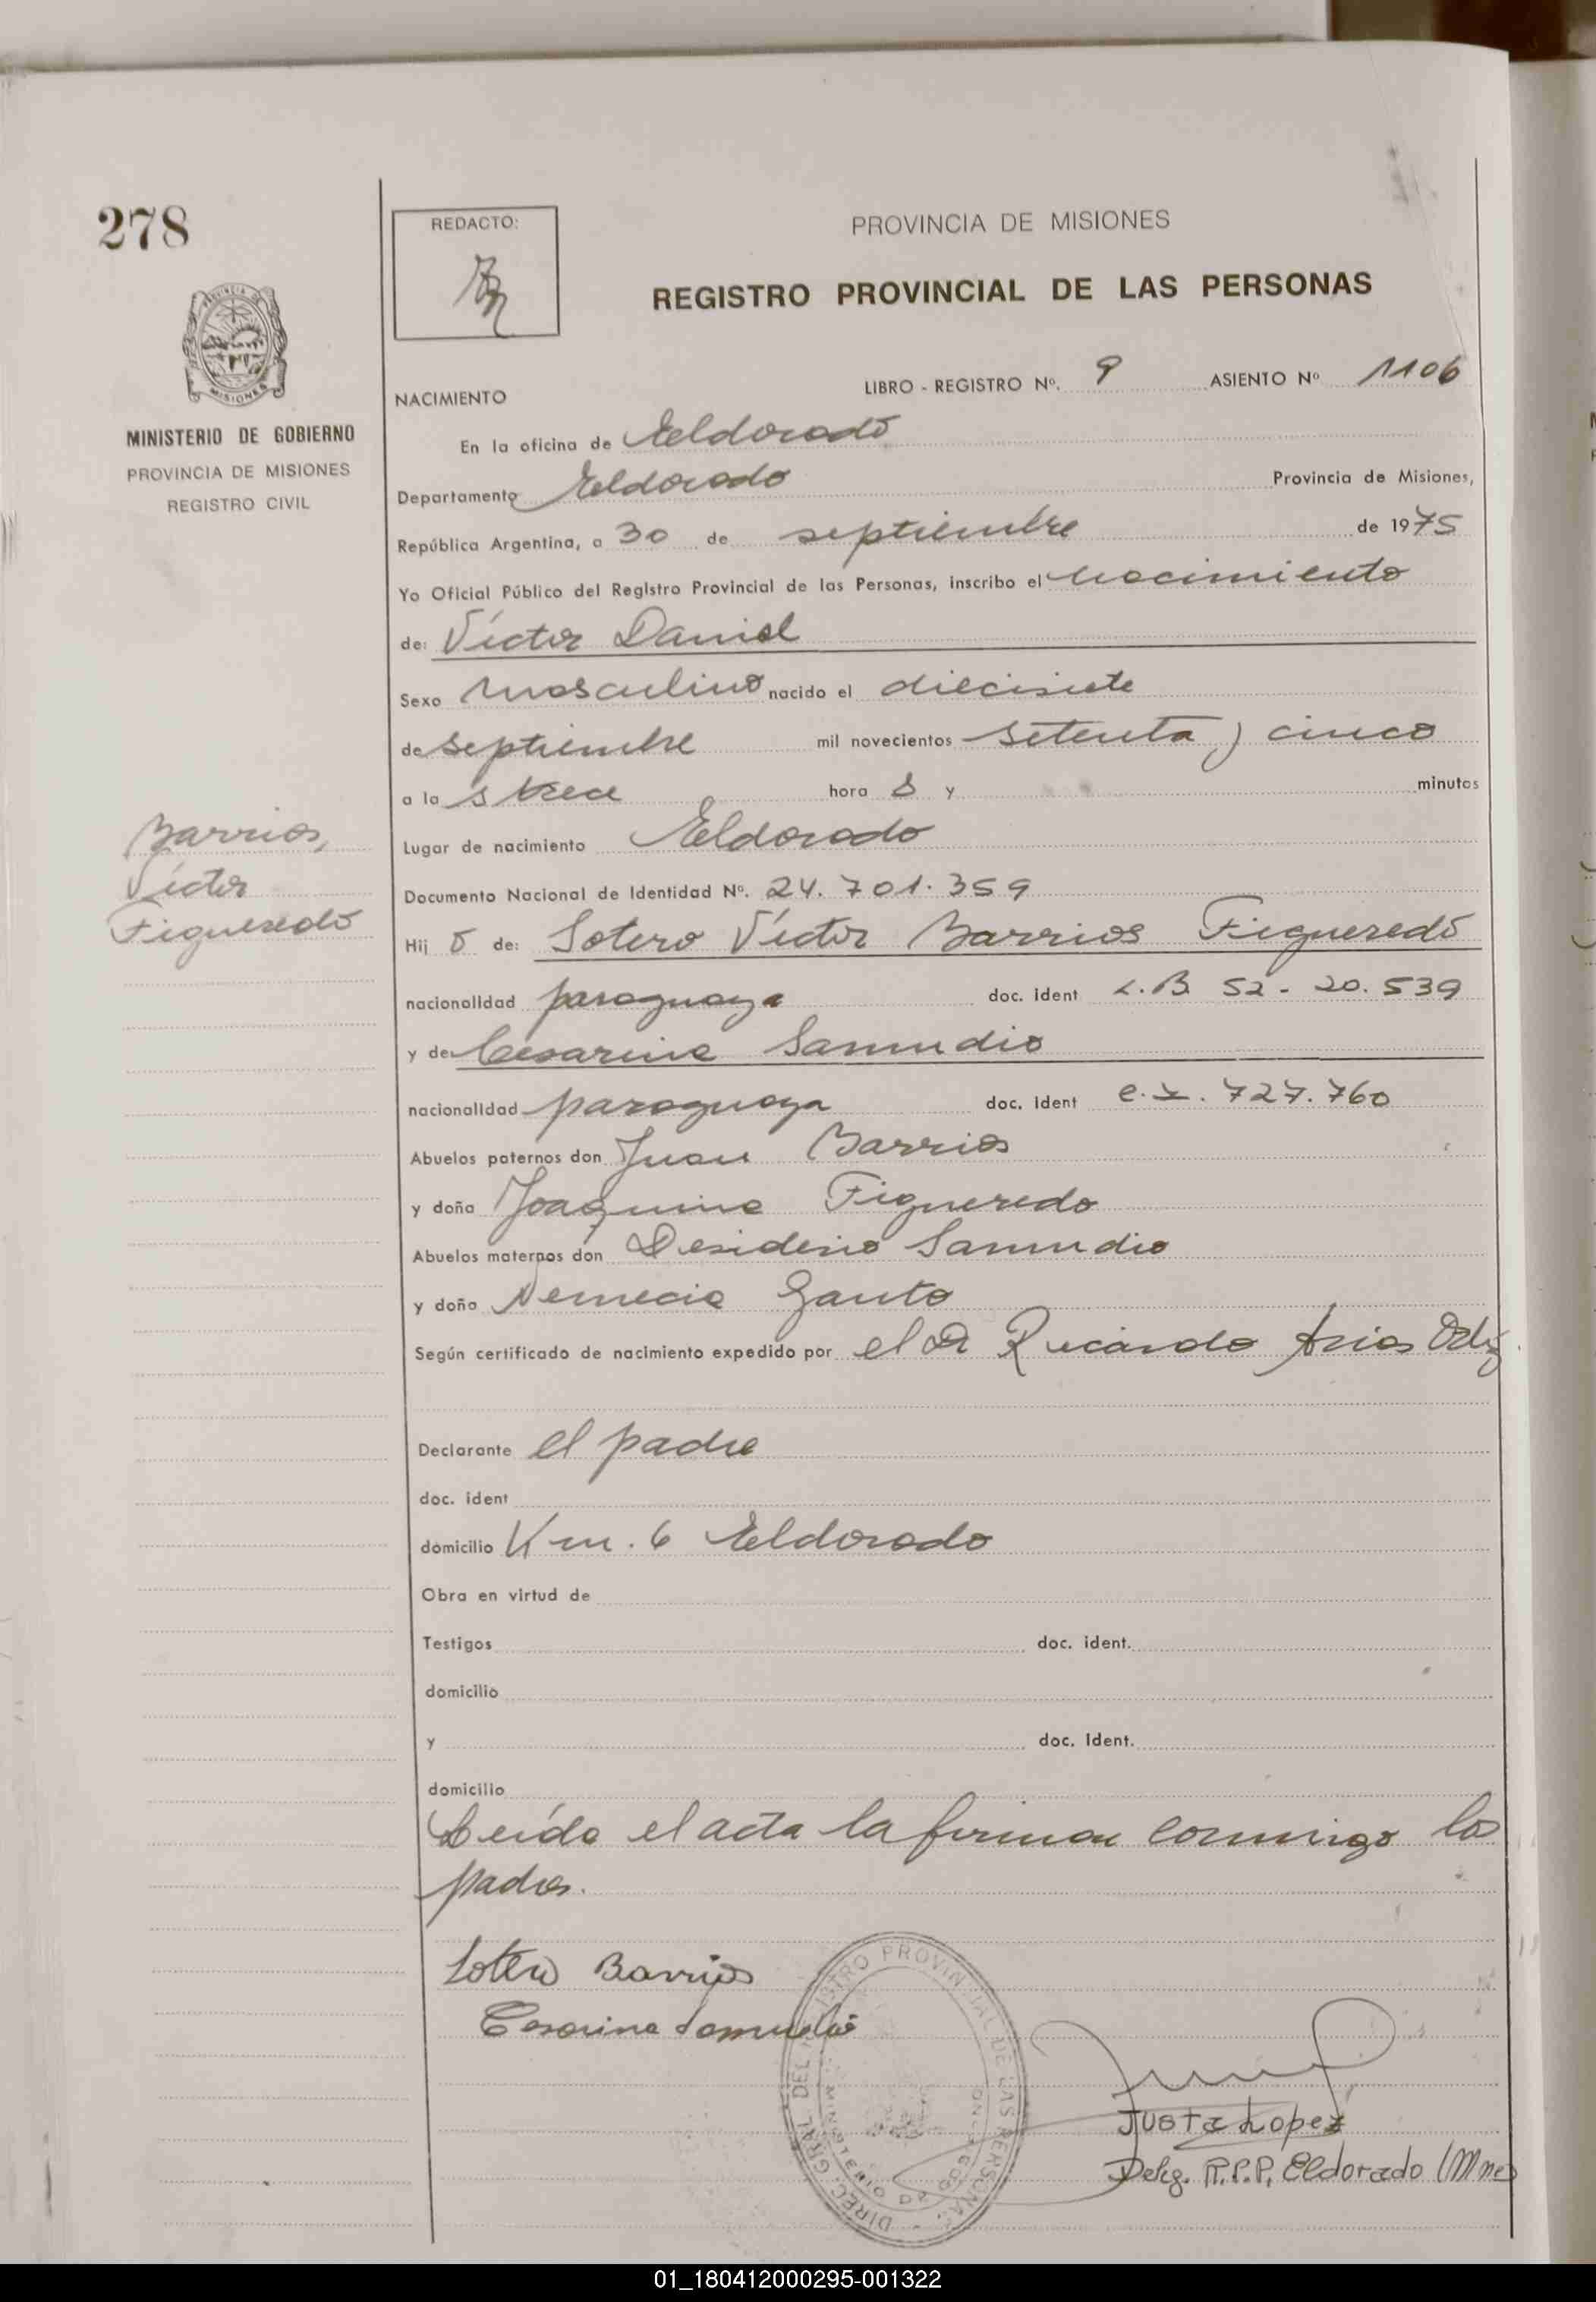 278
REDACTO:
PROVINCIA DE MISIONES
REGISTRO PROVINCIAL DE LAS PERSONAS
MISIONES
MINISTERIO DE GOBIERNO
PROVINCIA DE MISIONES
REGISTRO CIVIL
NACIMIENTO
LIBRO - REGISTRO Nº. 9 ASIENTO Nº 1106
En la oficina de Eldorado
Departamento Eldorado Provincia de Misiones,
República Argentina, a 30 de septiembre de 1975
Yo Oficial Público del Registro Provincial de las Personas, inscribo el nacimiento
de: Víctor Daniel
Sexo masculino nacido el diecisiete
de septiembre mil novecientos setenta y cinco
a la s trece hora s y minutos
Lugar de nacimiento Eldorado
Barrios,
Víctor
Figueredo
Documento Nacional de Identidad Nº. 24.701.359
Hij o de: Sotero Víctor Barrios Figueredo
nacionalidad paraguaya doc. ident L.B 52-20.539
y de Cesarina Samudio
nacionalidad paraguaya doc. ident C.I. 727.760
Abuelos paternos don Juan Barrios
y doña Joaquina Figueredo
Abuelos maternos don Desiderio Samudio
y doña Nemecia Gauto
Según certificado de nacimiento expedido por el Dr Ricardo Arias
Declarante el padre
doc. ident
domicilio Km. 6 Eldorado
Obra en virtud de
Testigos doc. ident.
domicilio
y doc. ident.
domicilio
Leída el acta la firman conmigo los
padres.
Sotero Barrios
Cesarina Samudio
DIREC. GRAL. DEL REGISTRO PROVINCIAL DE LAS PERSONAS
MINISTERIO DE GOBIERNO
Justa Lopez
Deleg. R.P.P. Eldorado (Mnes)
01_180412000295-001322